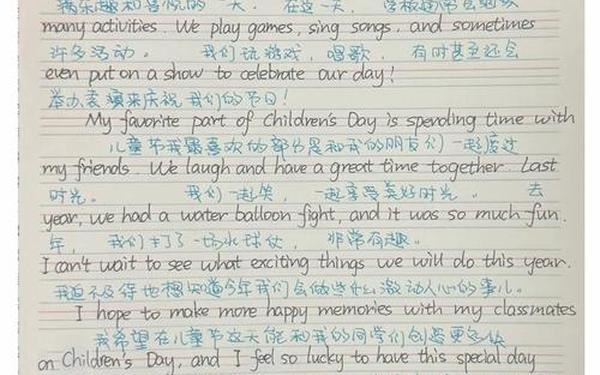 满乐趣和喜悦的一天. 在这一天, 学校通常
many activities. We play games, sing songs, and sometimes
许多活动. 我们玩游戏, 唱歌, 有时甚至还会
even put on a show to celebrate our day!
举办表演来庆祝我们的节日!
My favorite part of Children's Day is spending time with
儿童节我最喜欢的部分是和我的朋友们一起度过
my friends. We laugh and have a great time together. Last
时光. 我们一起笑, 一起享受美好时光. 去
year, we had a water balloon fight, and it was so much fun.
年, 我们打了一场水球仗, 非常有趣.
I can't wait to see what exciting things we will do this year.
我迫不及待地想知道今年我们会做些什么激动人心的事儿.
I hope to make more happy memories with my classmates
我希望在儿童节这天能和我的同学们创造更多快
on Children's Day, and I feel so lucky to have this special day